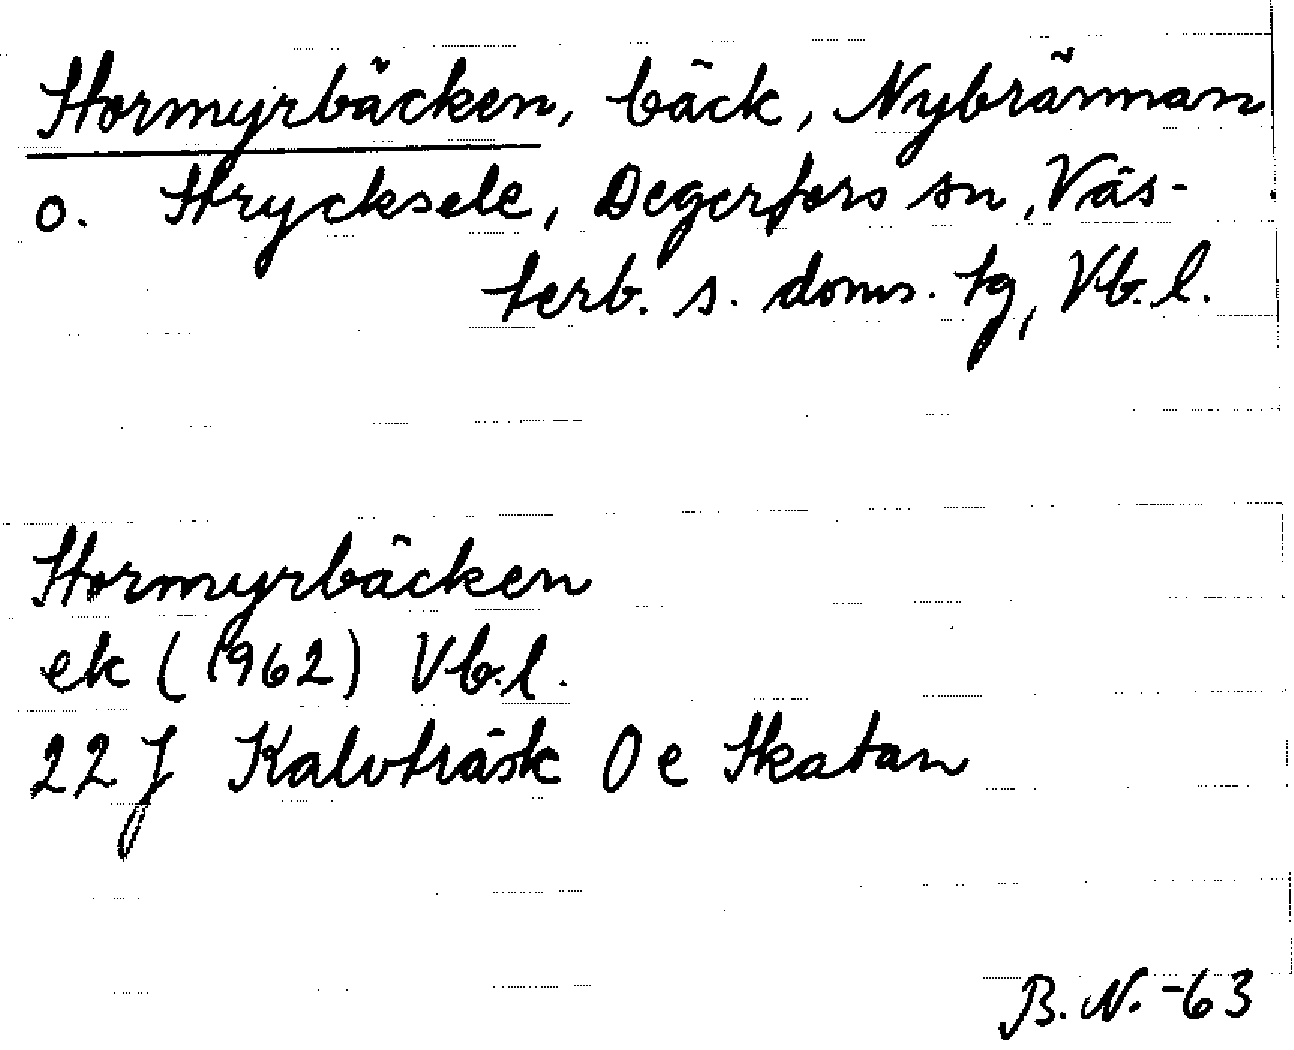 Stormyrbäcken, bäck, Nybrännan
o. Strycksele, Degerfors sn, Väs-
terb. s. doms. tg, Vb. l.
Stormyrbäcken
ek (1962) Vb. l.
22 J Kalvträsk 0 e Skatan
B. N. -63